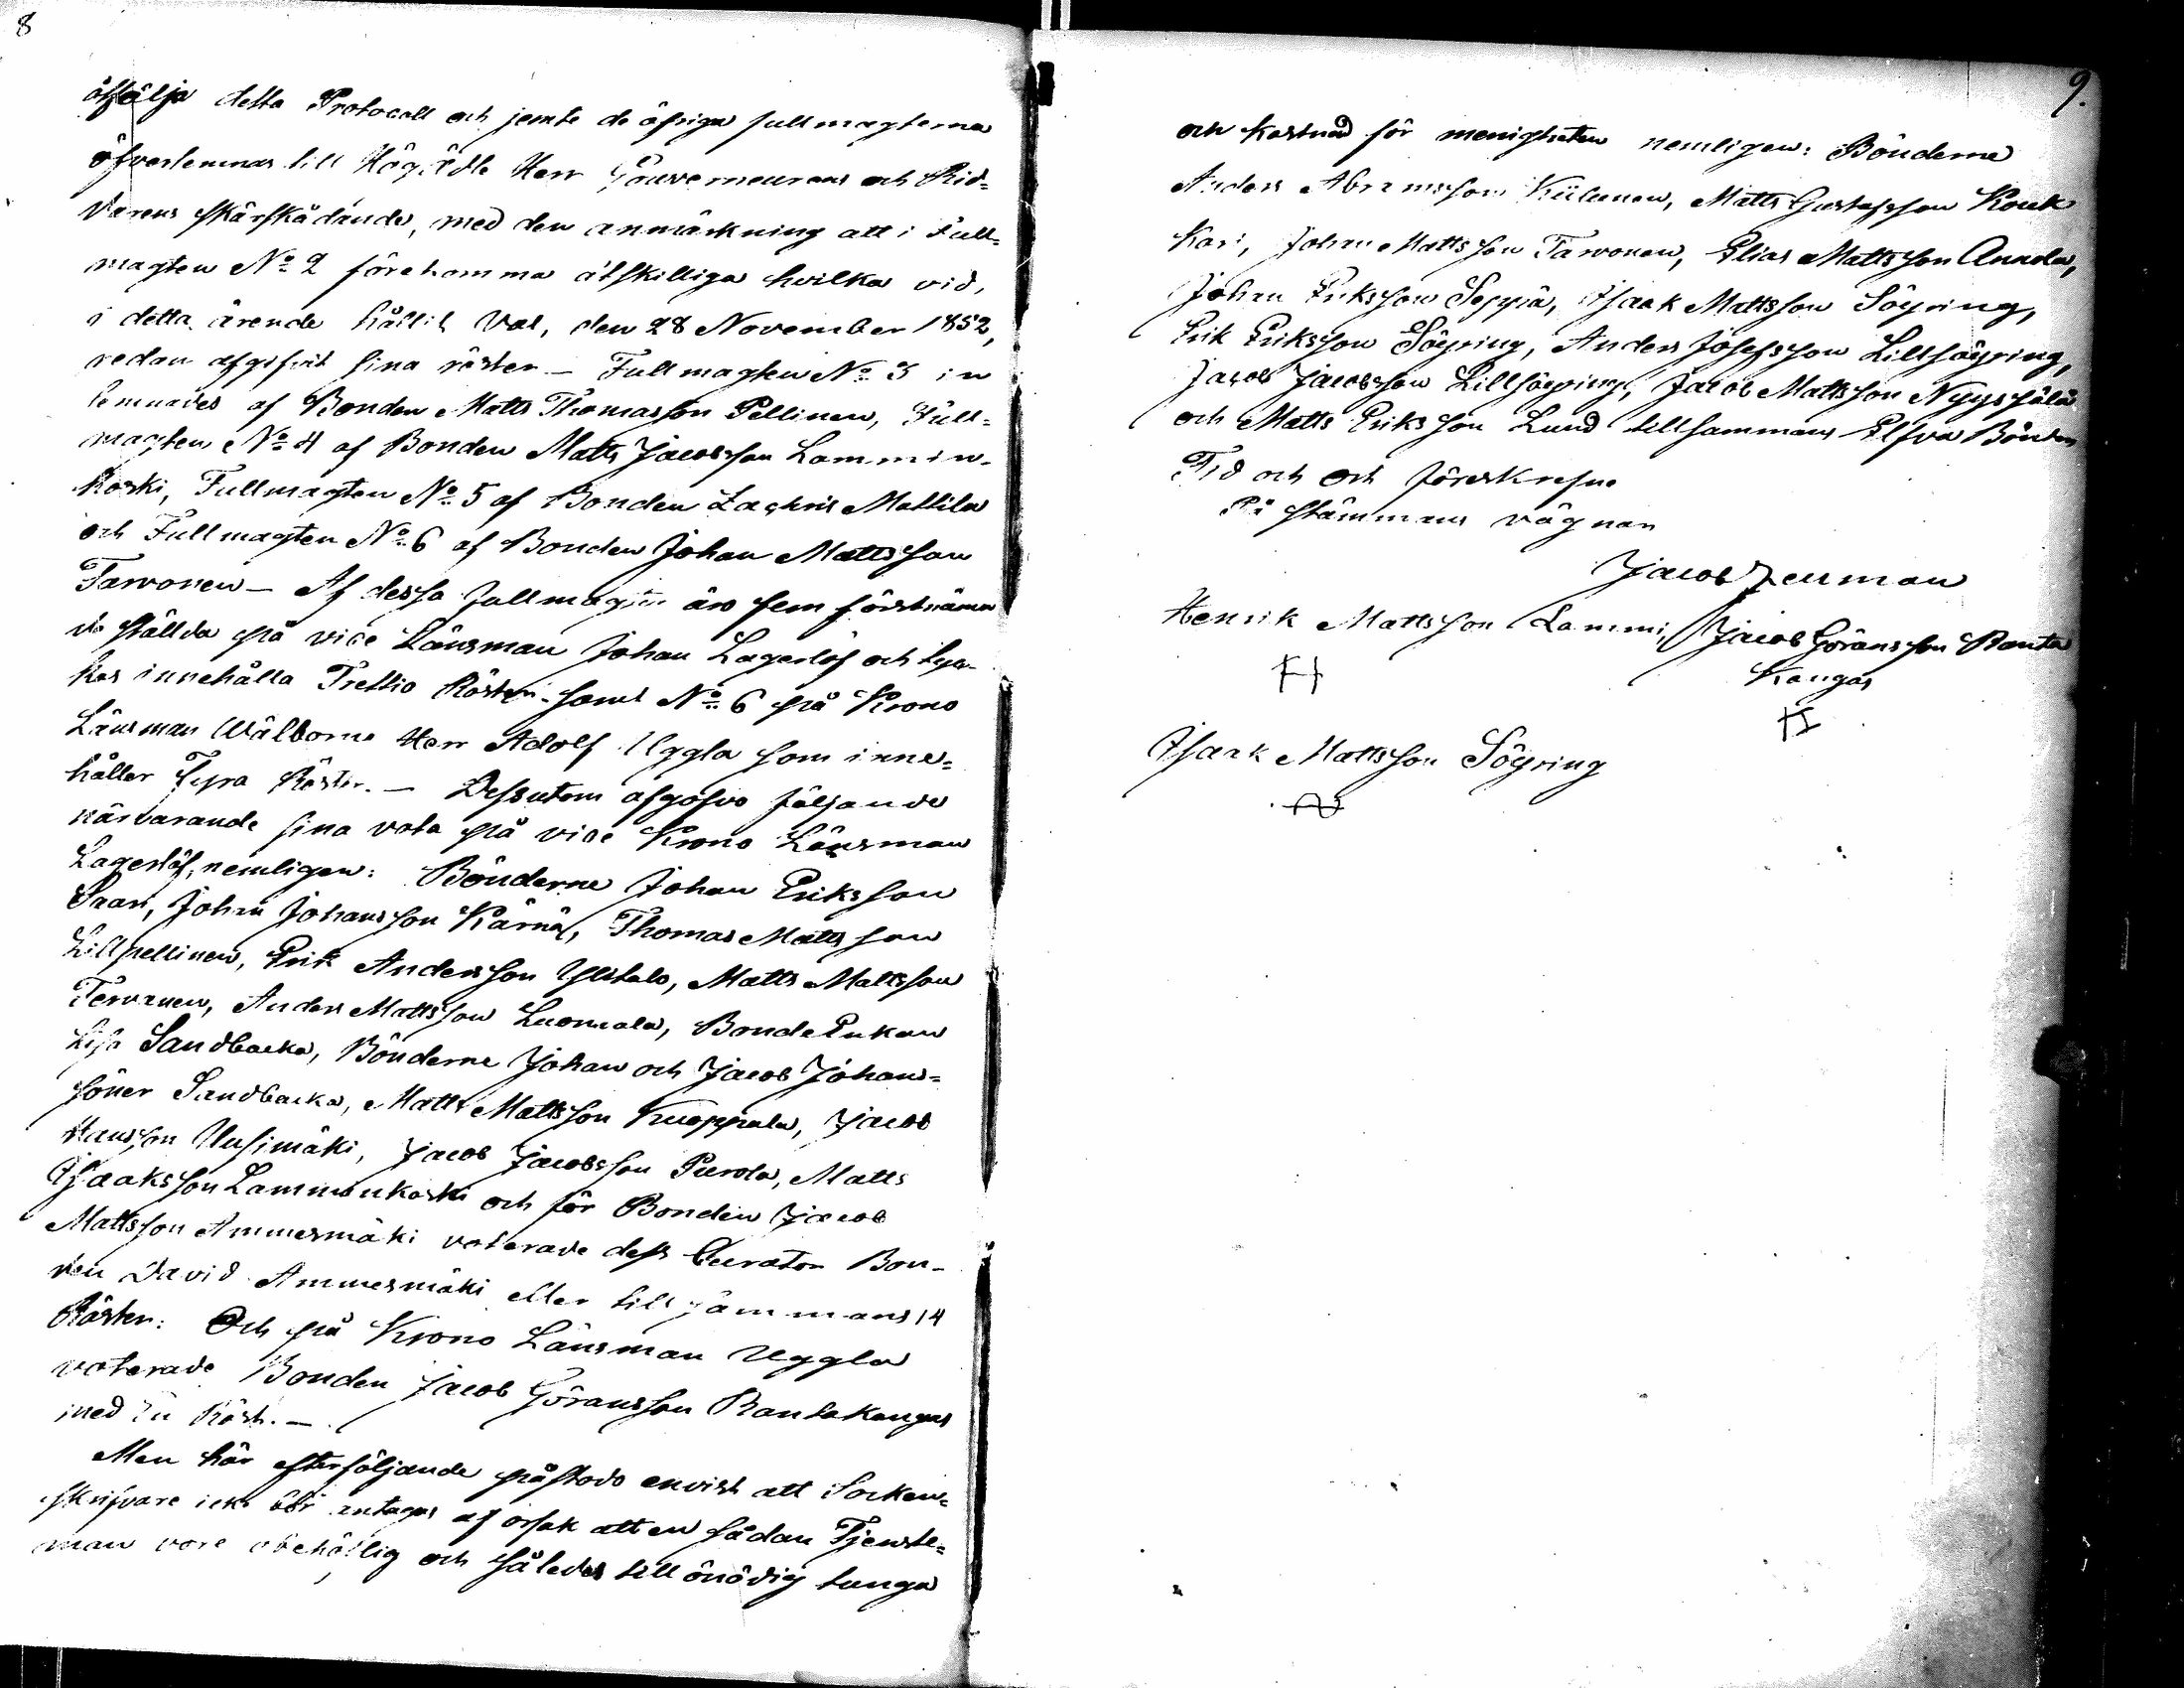 8
åtfölja detta Protocoll och jemte de öfriga fullmagterna
öfverlemnas till Högädle Herr Gouverneurens och Rid-
darens skärskådande, med den anmärkning att i Full-
magten No 2 förekomma åtskilliga hvilka vid,
i detta ärende hållit Val, den 28 November 1852,
redan afgifvit sina röster - Fullmagten No 3 in
lemnades af Bonden Matts Thomasson Pellinen, Full-
magten No 4 af Bonden Matts Jacobsson Lammin-
koski, Fullmagten No 5 af Bonden Zachris Mattila
och Fullmagten No 6 af Bonden Johan Mattsson
Tarvonen - Af dessa fullmagter äro fem förstnämn
de ställda på vice Länsman Johan Lagerlöf och
innehålla Trettio Röster samt No 6 på Krono
Länsman Wälborne Herr Adolf Uggla som inne-
håller Fyra Röster. - Dessutom afgåfvo följande
närvarande sina vota på vice Krono Länsman
Lagerlöf, nemligen: Bönderne Johan Eriksson
Saari, Johan Johansson Kärnä, Thomas Mattsson
Lillpellinen, Erik Andersson Ylitalo, Matts Mattsson
Tervanen, Anders Mattsson Luomala, Bonde Enkan
Lisa Sandbacka, Bönderne Johan och Jacob Johans-
söner Sandbacka, Matts Mattsson Kuoppala, Jacob
Hansson Uusimäki, Jacob Jacobsson Purola, Matts
Isaaksson Lamminkoski och för Bonden Jacob
Mattsson Ammesmäki voterade dess Curator Bon-
den David Ammesmäki eller tillsammans 14
Röster: Och på Krono Länsman Uggla
voterade Bonden Jacob Göransson Rantakangas
med En Röst. -
Men här efterföljande påstodo envist att Socken-
skrifvare icke bör antagas af orsak att en sådan Tjenste-
man vore obehöflig och således till onödig tunga
9.
och kostnad för menigheten nemligen: Bönderne
Anders Abramsson Kiilunen, Matts Gustafsson Kouk
kari, Johan Mattsson Tarvonen, Elias Mattsson Annala,
Johan Eriksson Seppä, Isaak Mattsson Söyring,
Erik Eriksson Söyring, Anders Josefsson Lillsöyring,
Jacob Jacobsson Lillsöyring, Jacob Mattsson Nyyssälä
och Matts Eriksson Lund tillsammans Elfva Bönder
Tid och Ort förerskrefne
På Stämmans vägnar
Jacob
Henrik Mattsson Lammi, Jacob Göransson Ranta
Kangas
Isaak Mattsson Söyring